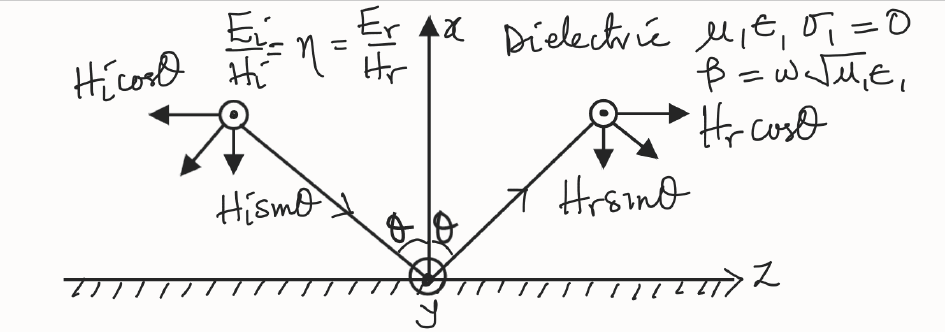 Ei/Hi = η = Er/Hr
x
Dielectric μ₁ϵ₁ σ₁ = 0
β = ω√μ₁ϵ₁
Hi cosθ
Hr cosθ
Hi sinθ
Hr sinθ
θ θ
z
y